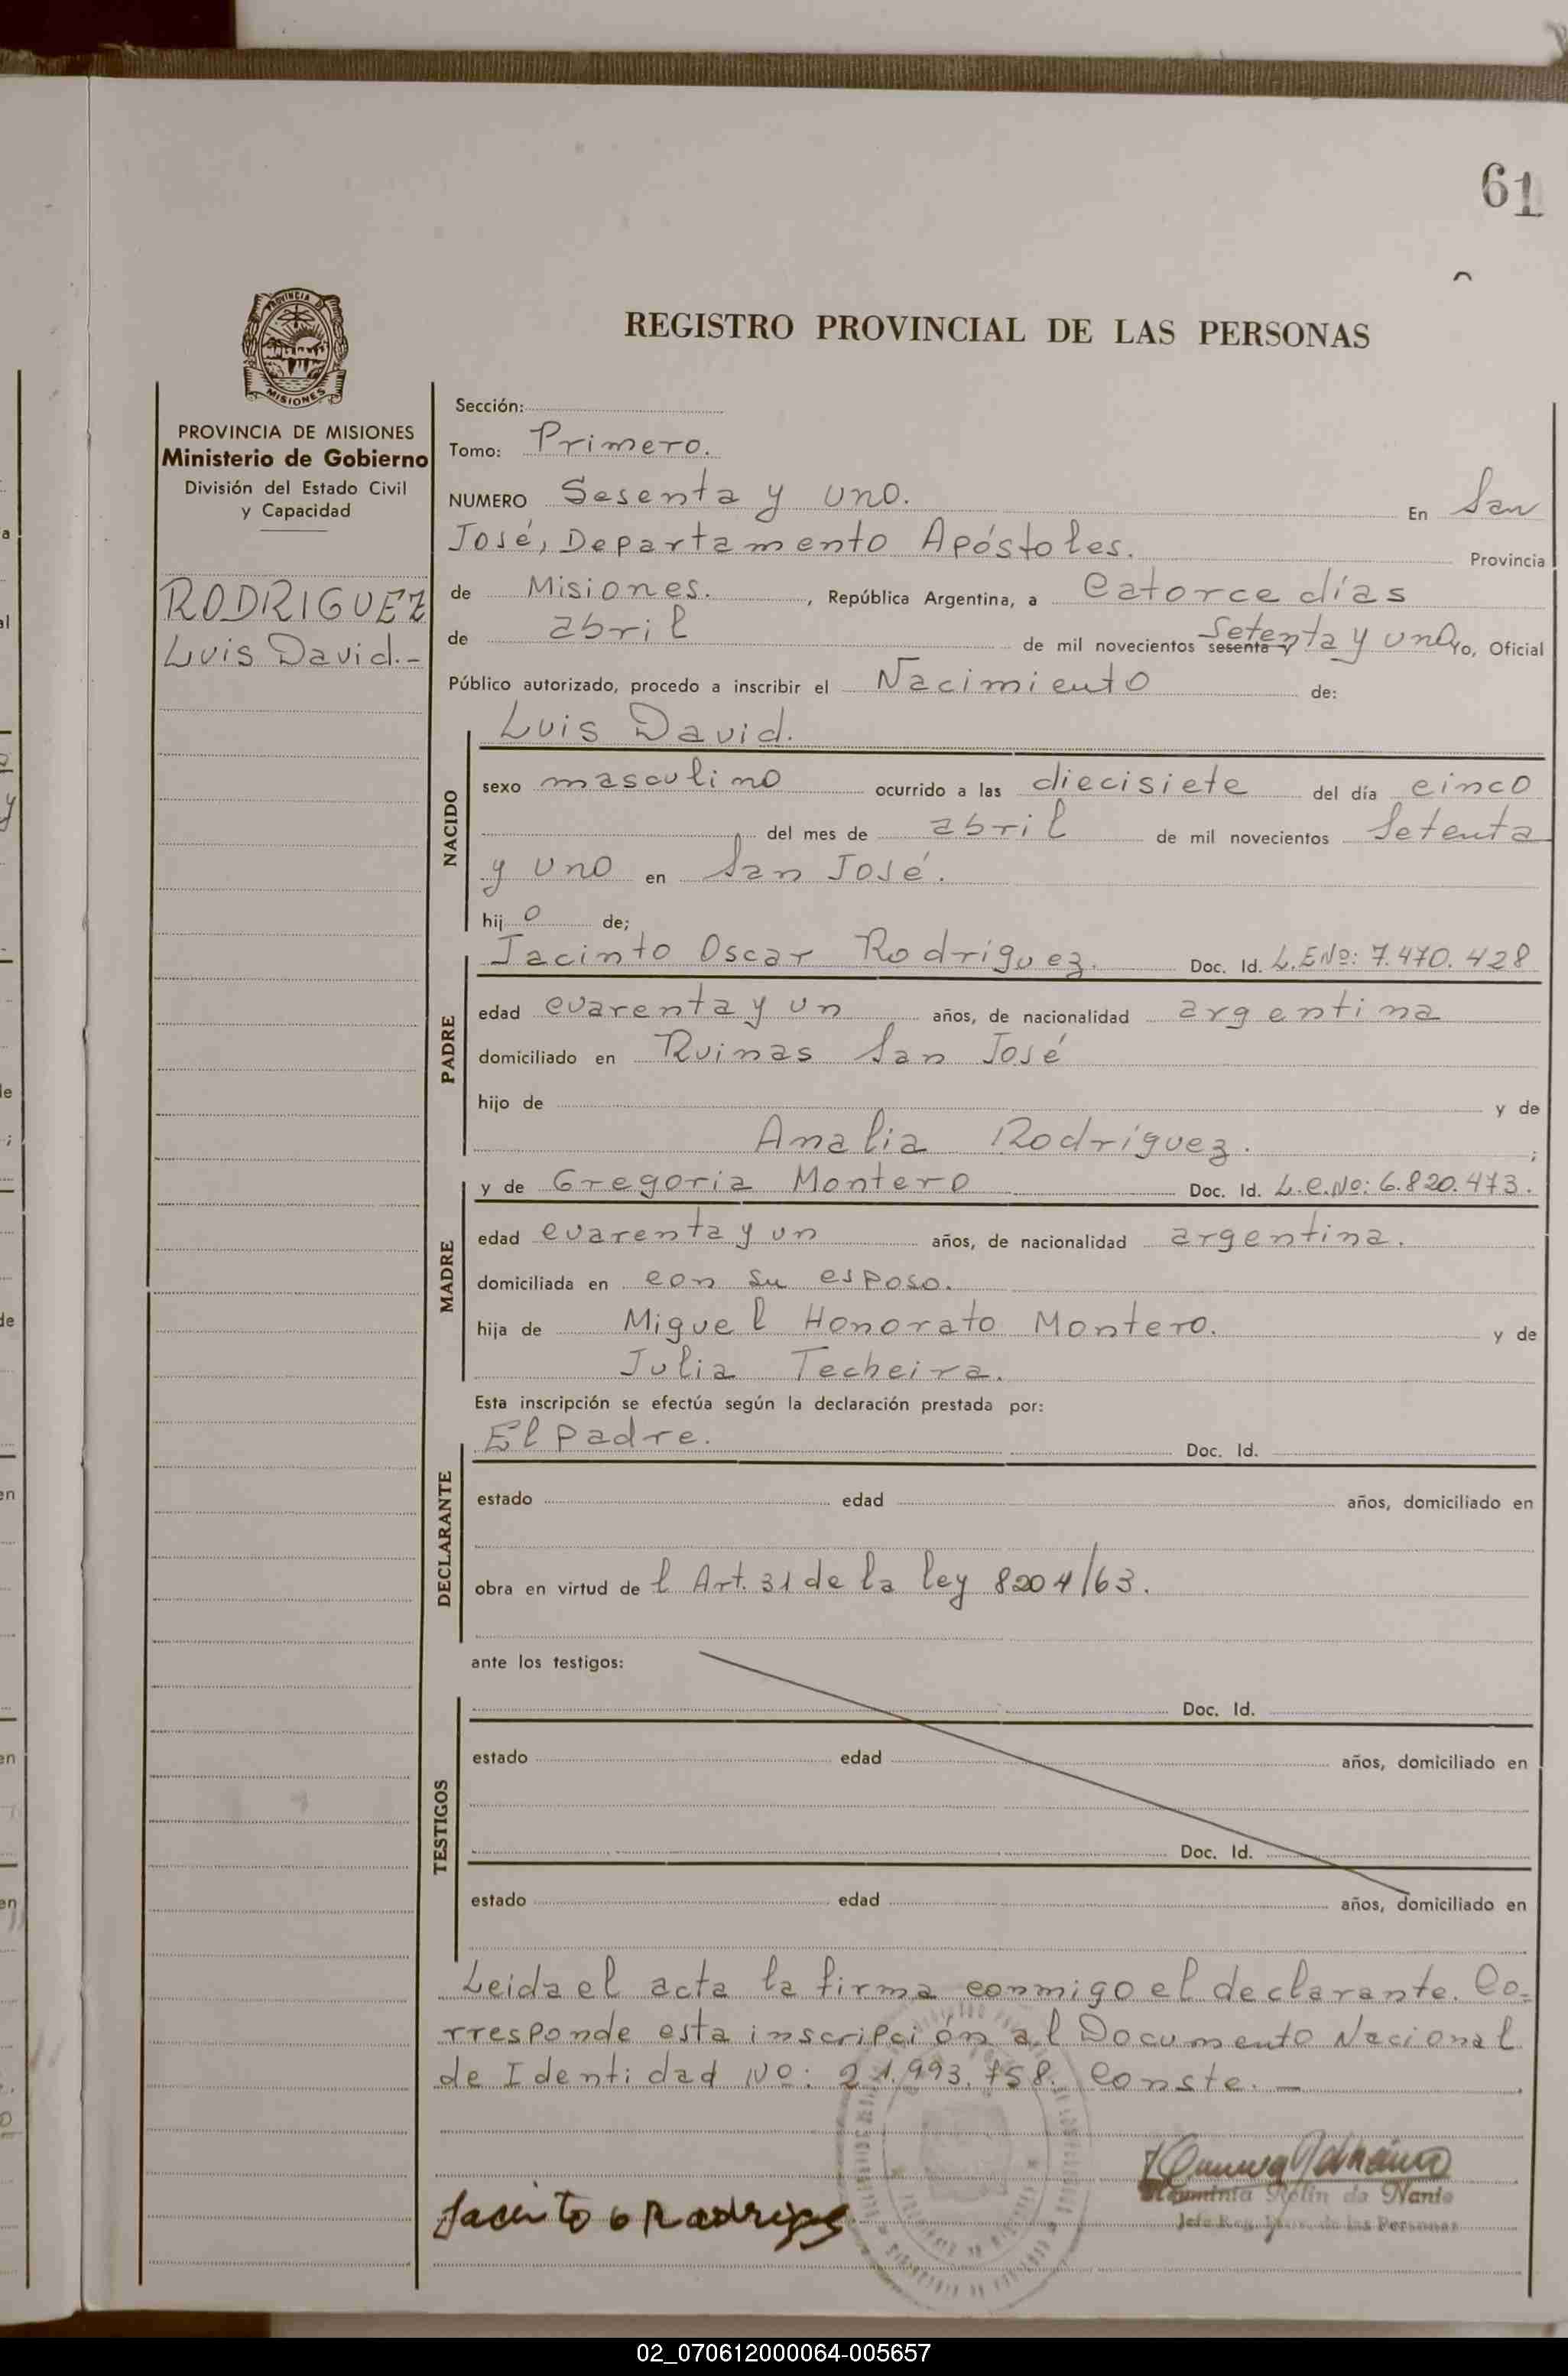 61
REGISTRO PROVINCIAL DE LAS PERSONAS
PROVINCIA DE
MISIONES
PROVINCIA DE MISIONES
Ministerio de Gobierno
División del Estado Civil
y Capacidad
RODRIGUEZ
Luis David.-
Sección:
Tomo: Primero.
NUMERO Sesenta y uno. En San
José, Departamento Apóstoles. Provincia
de Misiones. , República Argentina, a Catorce días
de abril de mil novecientos sesenta y Setenta y uno yo, Oficial
Público autorizado, procedo a inscribir el Nacimiento de:
NACIDO
Luis David.
sexo masculino ocurrido a las diecisiete del día cinco
del mes de abril de mil novecientos Setenta
y uno en San José.
hij o de;
PADRE
Jacinto Oscar Rodríguez. Doc. Id. L.E Nº: 7.470.428
edad cuarenta y un años, de nacionalidad argentina
domiciliado en Ruinas San José
hijo de y de
Analia Rodríguez. ;
MADRE
y de Gregoria Montero Doc. Id. L.C. Nº: 6.820.473.
edad cuarenta y un años, de nacionalidad argentina.
domiciliada en con su esposo.
hija de Miguel Honorato Montero. y de
Julia Techeira.
Esta inscripción se efectúa según la declaración prestada por:
DECLARANTE
El padre. Doc. Id.
estado edad años, domiciliado en
obra en virtud de l Art. 31 de la ley 8204/63.
ante los testigos:
TESTIGOS
Doc. Id.
estado edad años, domiciliado en
Doc. Id.
estado edad años, domiciliado en
Leida el acta la firma conmigo el declarante. Co-
rresponde esta inscripción al Documento Nacional
de Identidad Nº: 21.993.758. Conste. —
Jacinto o Rodrigez
Rolin de Nanio
Jefe Reg. Prov. de las Personas
02_070612000064-005657